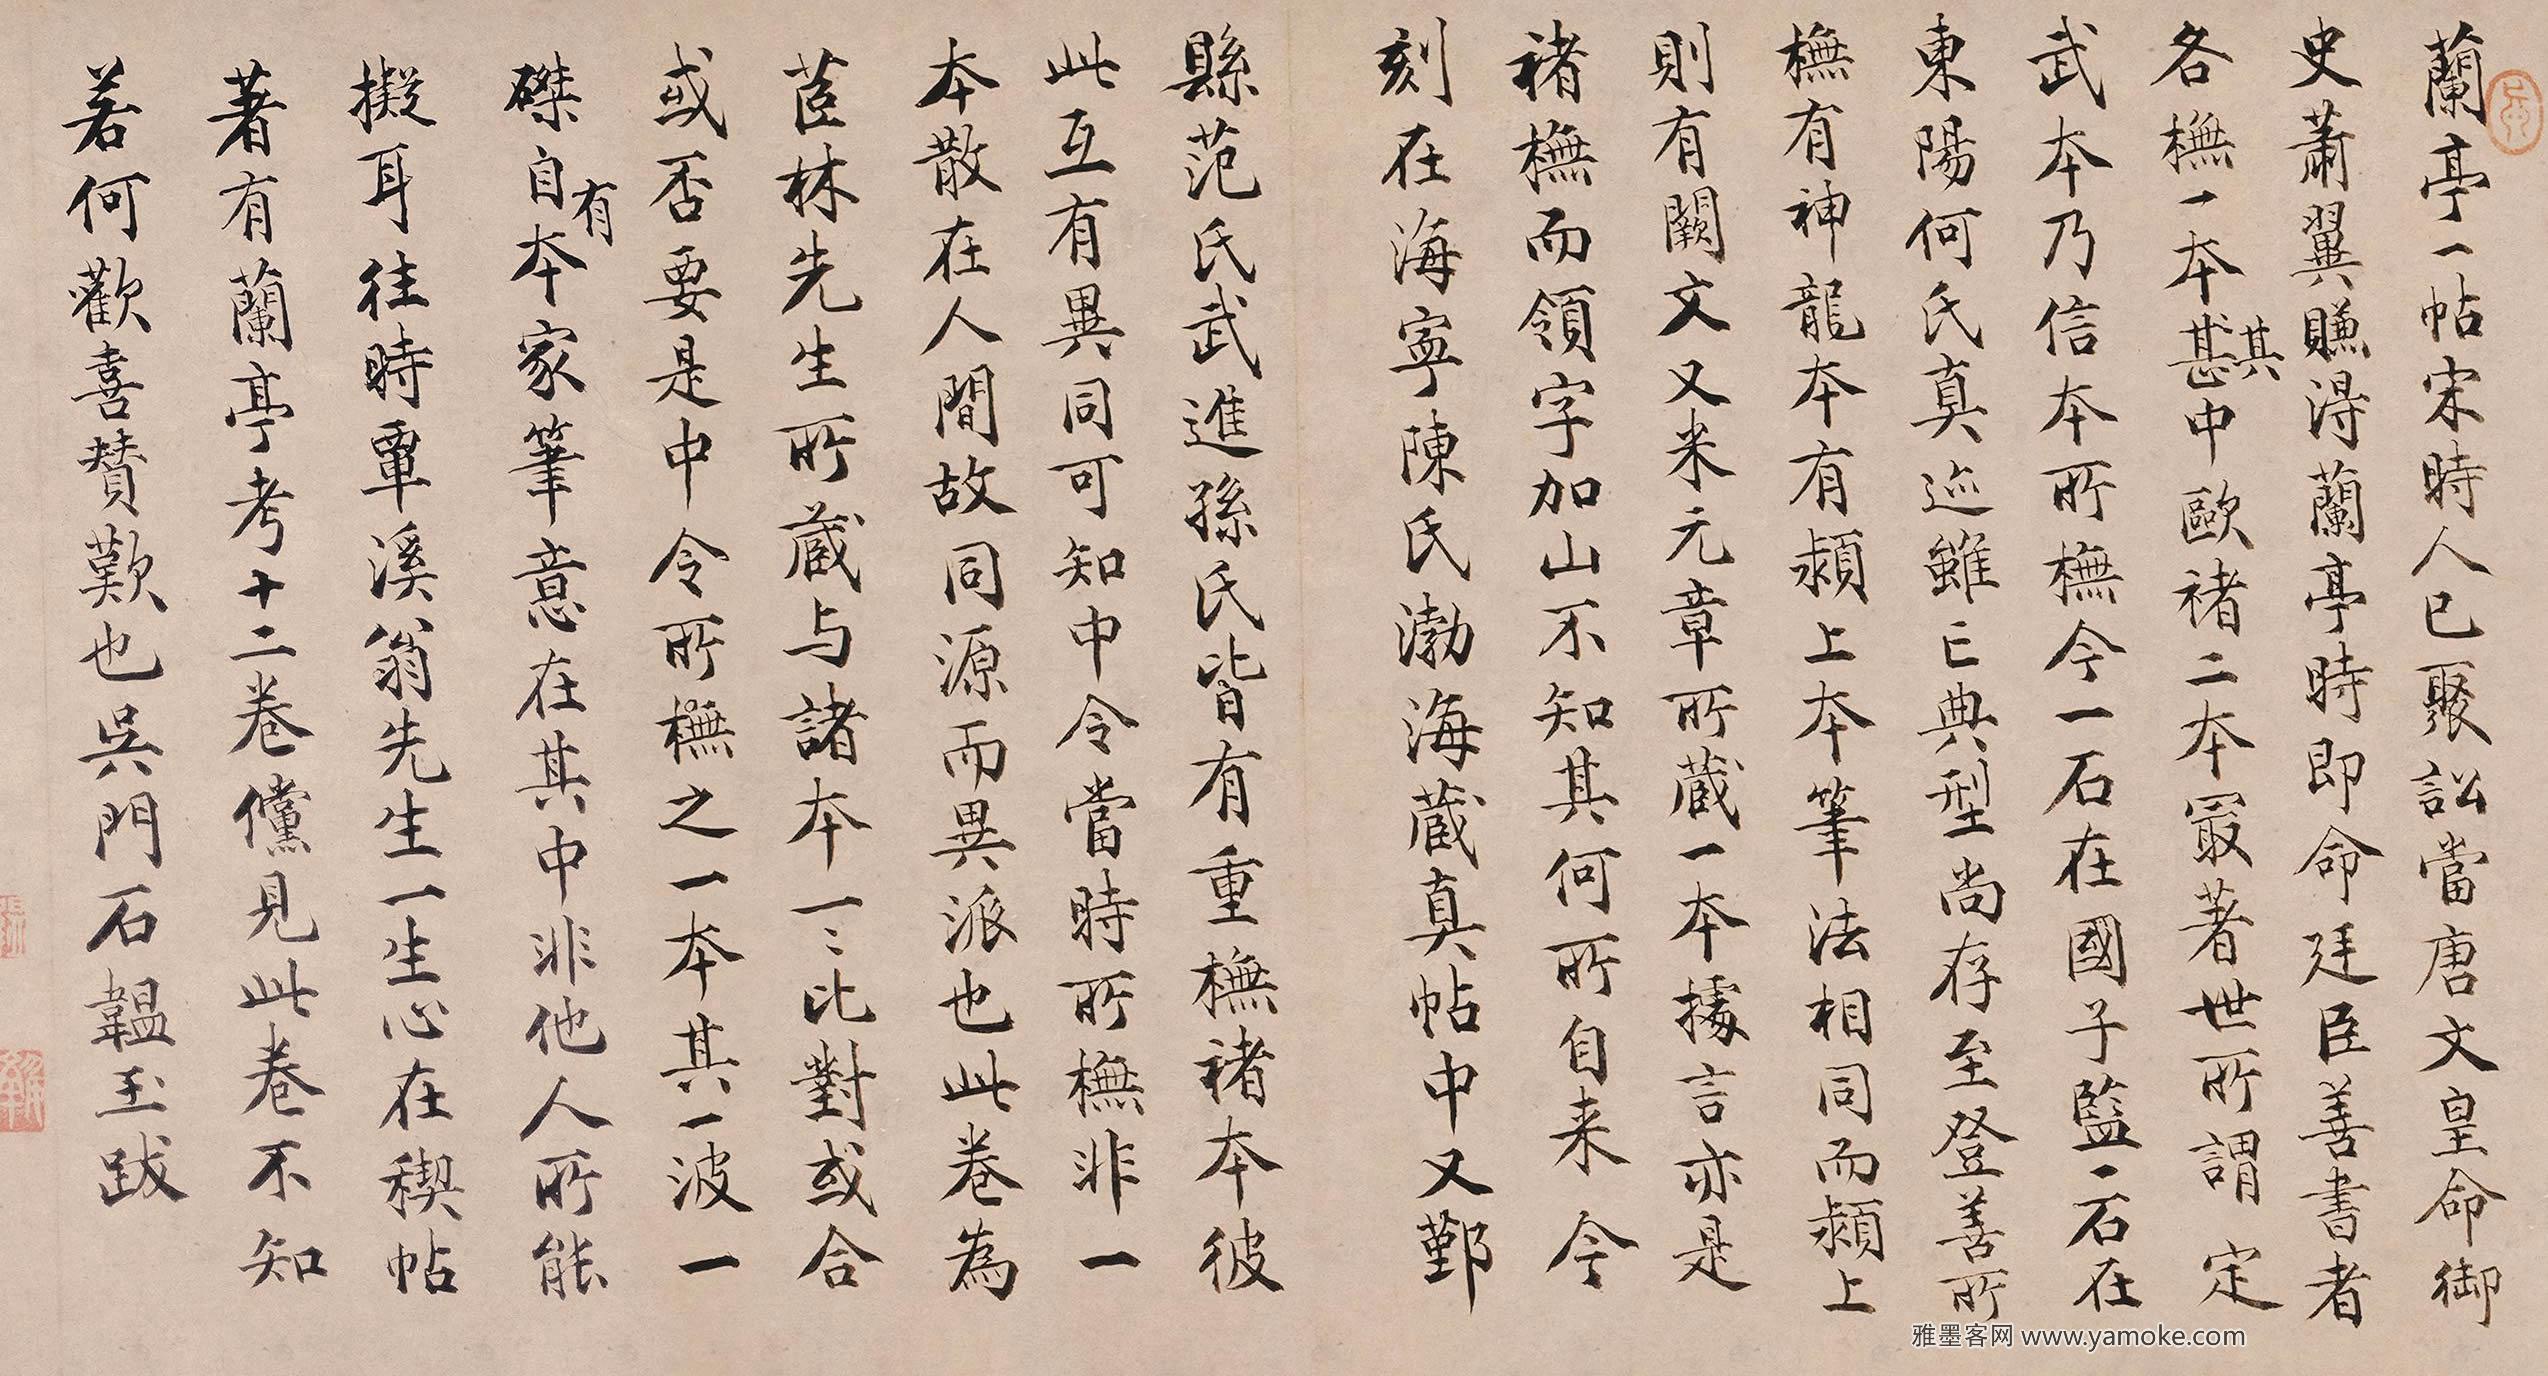 蘭亭一帖宋時人已聚訟當唐文皇命御
史蕭翼賺得蘭亭時即命廷臣善書者
各橅一本其甚中歐褚二本㝡著世所謂定
武本乃信本所橅今一石在國子監一石在
東陽何氏真迹雖亡典型尚存至登善所
橅有神龍本有潁上本筆法相同而潁上
則有闕文又米元章所藏一本據言亦是
褚橅而領字加山不知其何所自来今
刻在海寧陳氏渤海藏真帖中又鄞
縣范氏武進孫氏皆有重橅褚本彼
此互有異同可知中令當時所橅非一
本散在人間故同源而異派也此卷為
茝林先生所藏与諸本一〻比對或合
或否要是中令所橅之一本其一波一
磔自有本家筆意在其中非他人所能
擬耳往時覃溪翁先生一生心在稧帖
著有蘭亭考十二卷儻見此卷不知
若何歡喜贊歎也吳門石韞玉跋
雅墨客网 www.yamoke.com